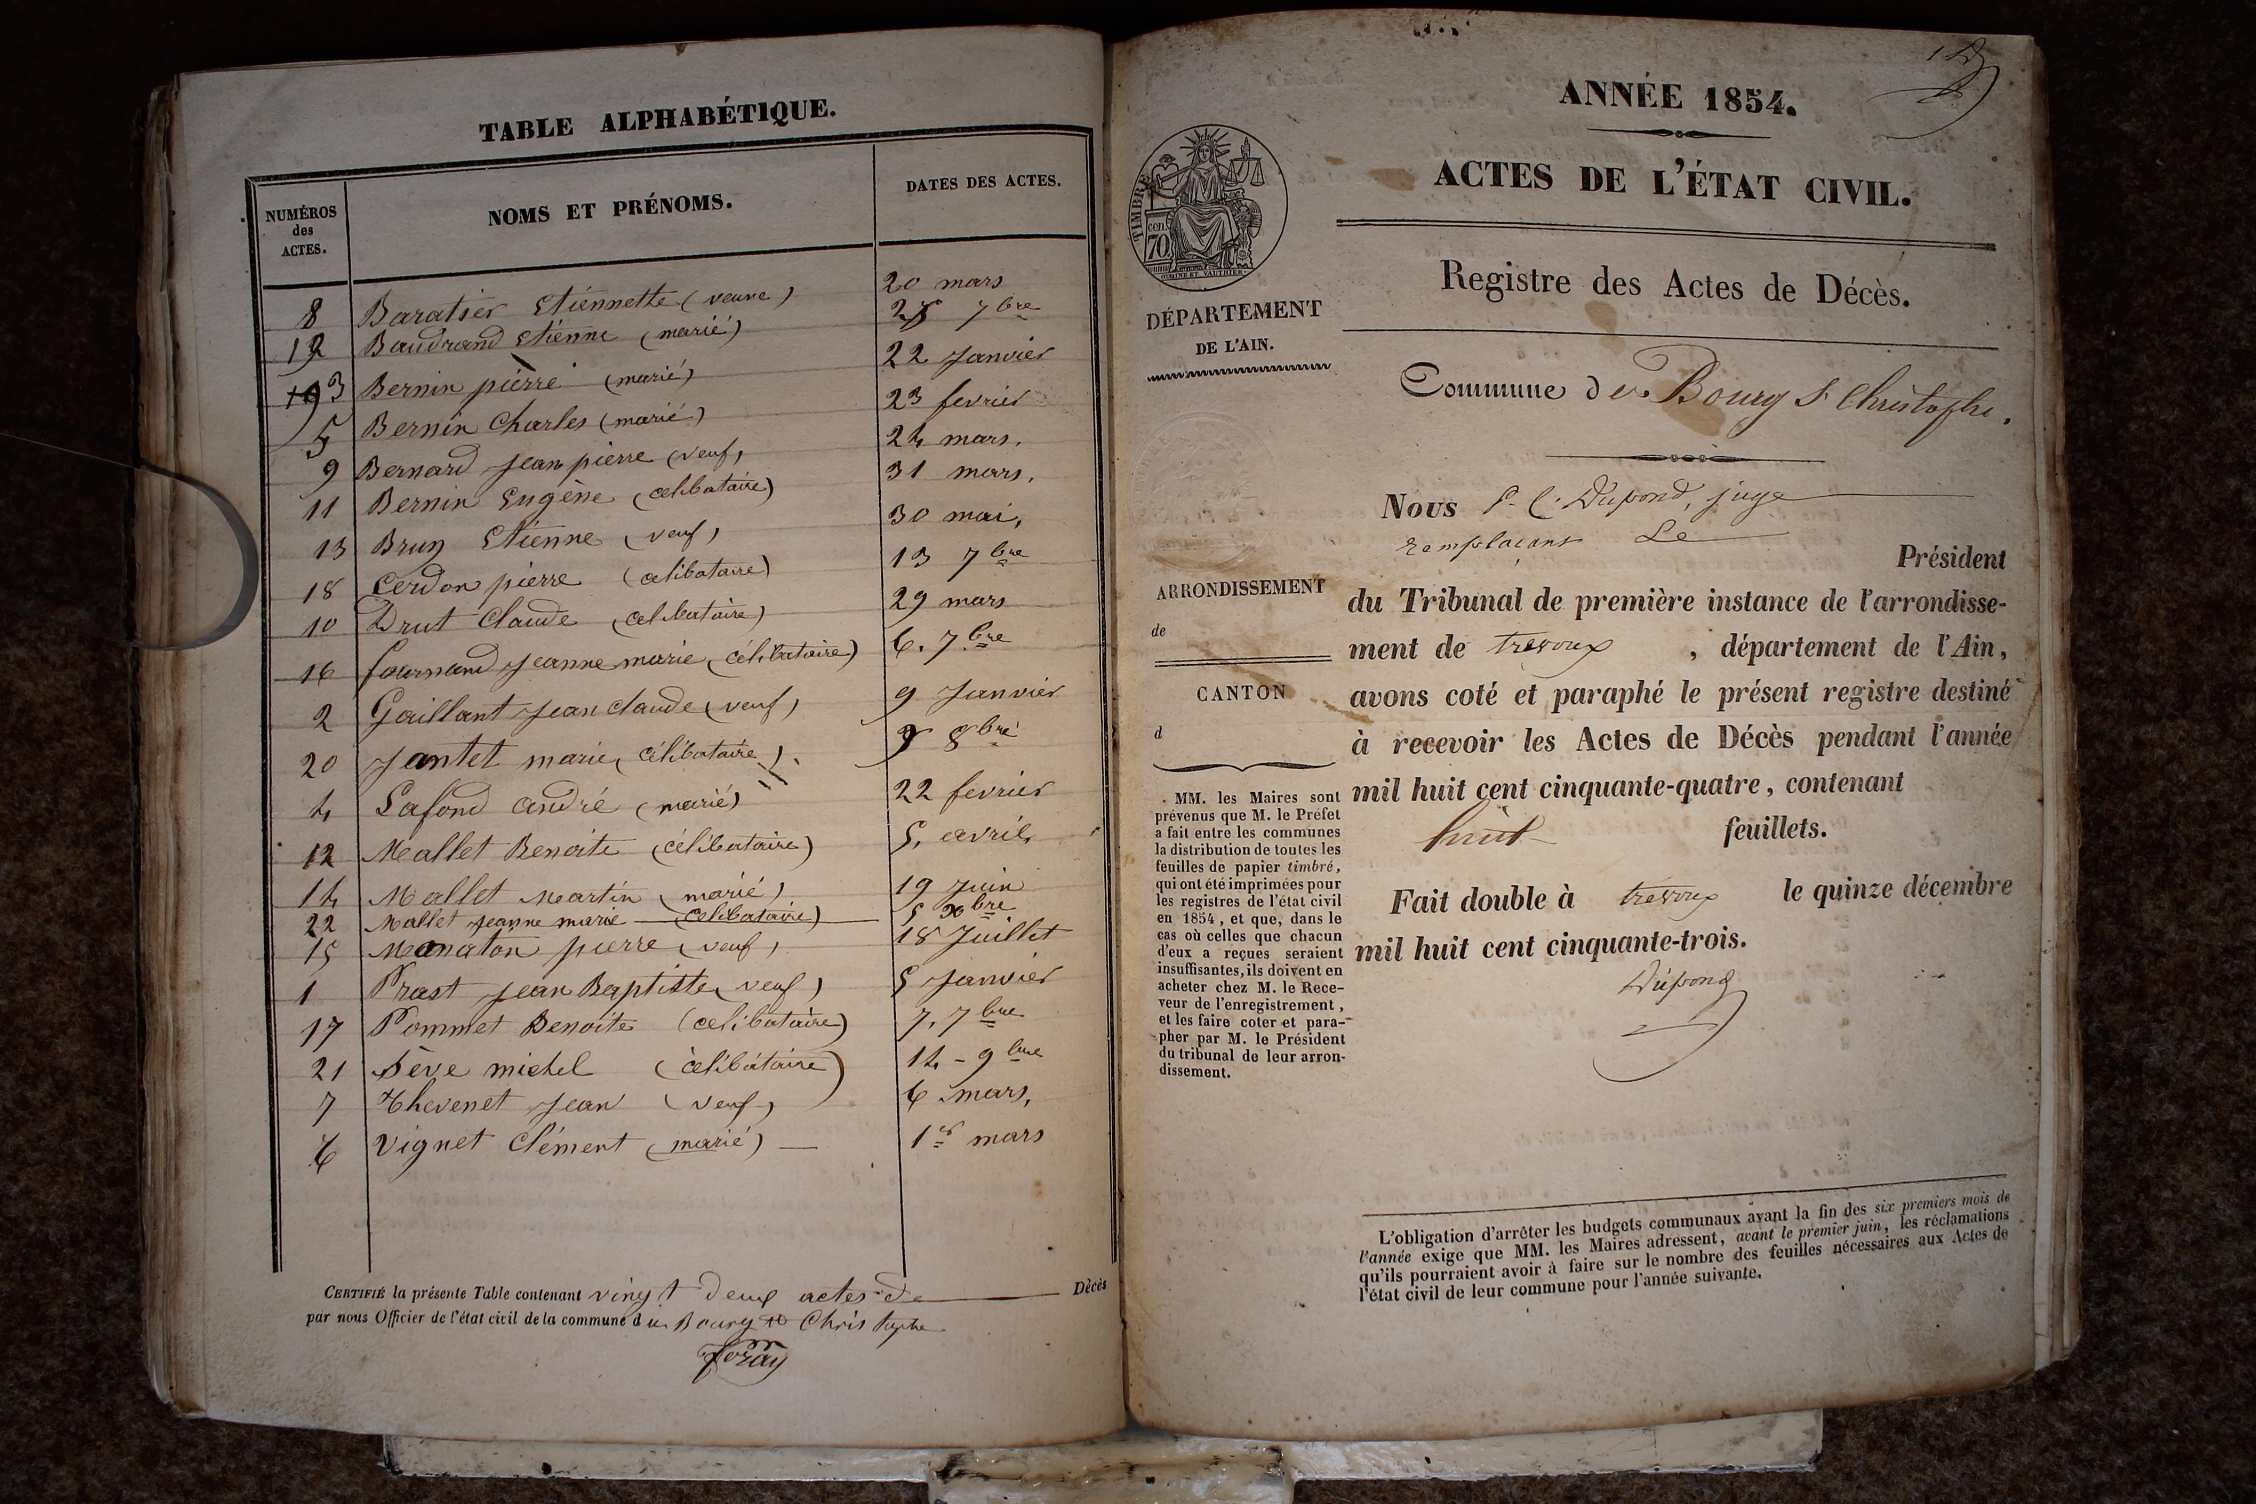 TABLE ALPHABÉTIQUE.
NUMÉROS des ACTES.
NOMS ET PRÉNOMS.
DATES DES ACTES.
8 Baratier Etiennette (veuve) 20 mars
19 Baudrand Etienne (marié) 28 7bre
3 Bernin pierre (marié) 22 Janvier
5 Bernin Charles (marié) 23 fevrier
9 Bernard Jean pierre (veuf) 24 mars.
11 Bernin Eugène (celibataire) 31 mars.
13 Brun Etienne (veuf) 30 mai,
18 Cerdon pierre (celibataire) 13 7bre
10 Drut Claude (celibataire) 29 mars
16 fournand Jeanne marie (célibataire) 6. 7bre
2 Gaillant Jean Claude (veuf) 9 Janvier
20 Jantet marie (célibataire) 9 8bre
4 Lafond andré (marié) 22 fevrier
12 Mallet Benoite (célibataire) 5. avril
14 Mallet Martin (marié) 19 Juin
22 Mallet Jeanne marie (celibataire) 5 Xbre
15 Manaton pierre (veuf) 18 Juillet
1 Prast Jean Baptiste (veuf) 5 Janvier
17 Pommet Benoite (celibataire) 7. 7bre
21 Sève michel (célibataire) 14 - 9bre
7 Thevenet Jean (veuf) 6 mars,
6 Vignet Clément (marié) 1er mars
CERTIFIÉ la présente Table contenant vingt deux actes de Décès
par nous Officier de l'état civil de la commune du Bourg St Christophe
ANNÉE 1854.
ACTES DE L'ÉTAT CIVIL.
TIMBRE
70 cen.
Registre des Actes de Décès.
DÉPARTEMENT
DE L'AIN.
Commune de Bourg St Christophe.
Nous P. C. Dupond, juge
remplaçant Le
Président
ARRONDISSEMENT
de
CANTON
d
du Tribunal de première instance de l'arrondisse-
ment de trevoux, département de l'Ain,
avons coté et paraphé le présent registre destiné
à recevoir les Actes de Décès pendant l'année
mil huit cent cinquante-quatre, contenant
huit feuillets.
Fait double à trevoux le quinze décembre
mil huit cent cinquante-trois.
Dupond
MM. les Maires sont
prévenus que M. le Préfet
a fait entre les communes
la distribution de toutes les
feuilles de papier timbré,
qui ont été imprimées pour
les registres de l'état civil
en 1854, et que, dans le
cas où celles que chacun
d'eux a reçues seraient
insuffisantes, ils doivent en
acheter chez M. le Rece-
veur de l'enregistrement,
et les faire coter et para-
pher par M. le Président
du tribunal de leur arron-
dissement.
L'obligation d'arrêter les budgets communaux avant la fin des six premiers mois de
l'année exige que MM. les Maires adressent, avant le premier juin, les réclamations
qu'ils pourraient avoir à faire sur le nombre des feuilles nécessaires aux Actes de
l'état civil de leur commune pour l'année suivante.